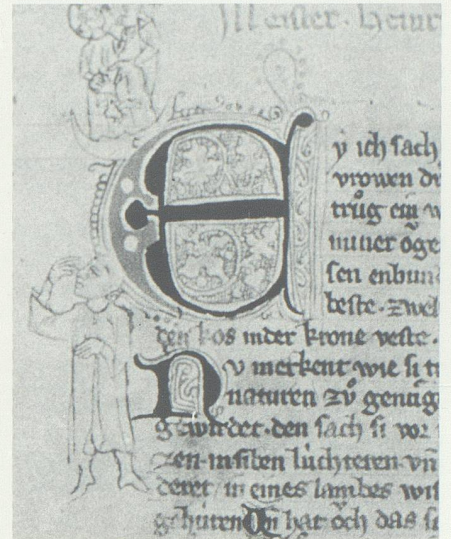 Meister. Heinr
Ey ich sach
vrowen
trůg ein
miner ŏge
sen enbun
beste. zwel
den kos inder krone veste.
Nv merkent wie si
naturen zů
den sach si vor
zen. insiben lůchteren vn̄
deret in eines lambes wis
gehůren Ovch hat ŏch das